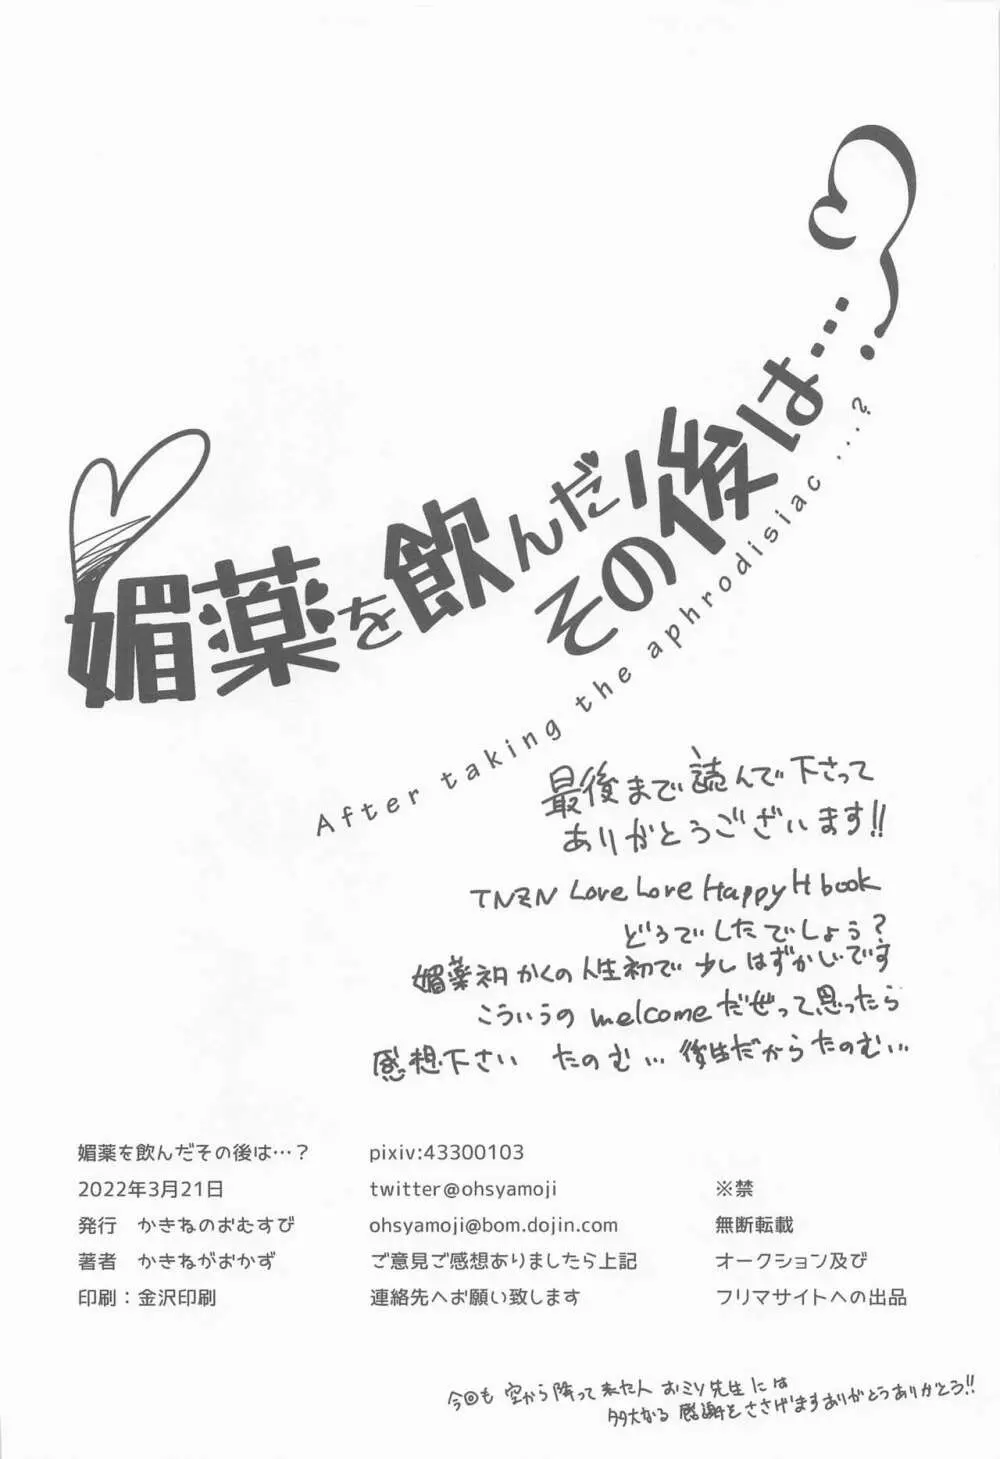 媚薬を飲んだその後は…?
After taking the aphrodisiac ...?
最後まで読んで下さって
ありがとうございます!!
TNZN Love Love Happy H book
どうでしたでしょう?
媚薬ネタかくの人生初で少しはずかしいです
こういうの welcomeだぜって思ったら
感想下さい たのむ… 後生だからたのむ…
媚薬を飲んだその後は…?
2022年3月21日
発行 かきねのおむすび
著者 かきねがおかず
印刷:金沢印刷
pixiv:43300103
twitter@ohsyamoji
ohsyamoji@bom.dojin.com
ご意見ご感想ありましたら上記
連絡先へお願い致します
※禁
無断転載
オークション及び
フリマサイトへの出品
今回も 空から降って来た人 おミソ先生には
多大なる 感謝をささげますありがとうありがとう!!